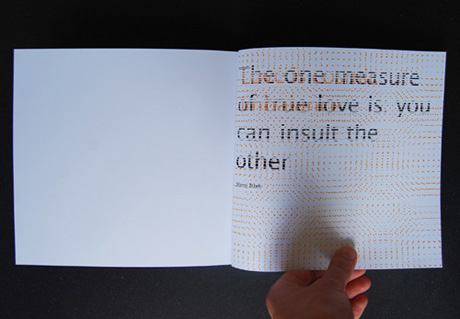 The one measure
of true love is: you
can insult the
other